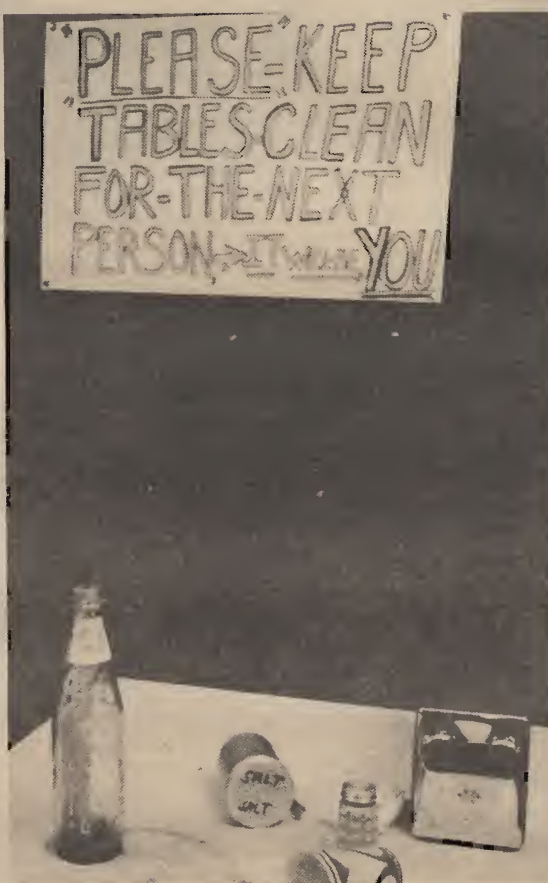 "PLEASE"=KEEP
"TABLES"CLEAN
FOR-THE-NEXT
PERSON->IT MAYBE YOU
SALT
SALT